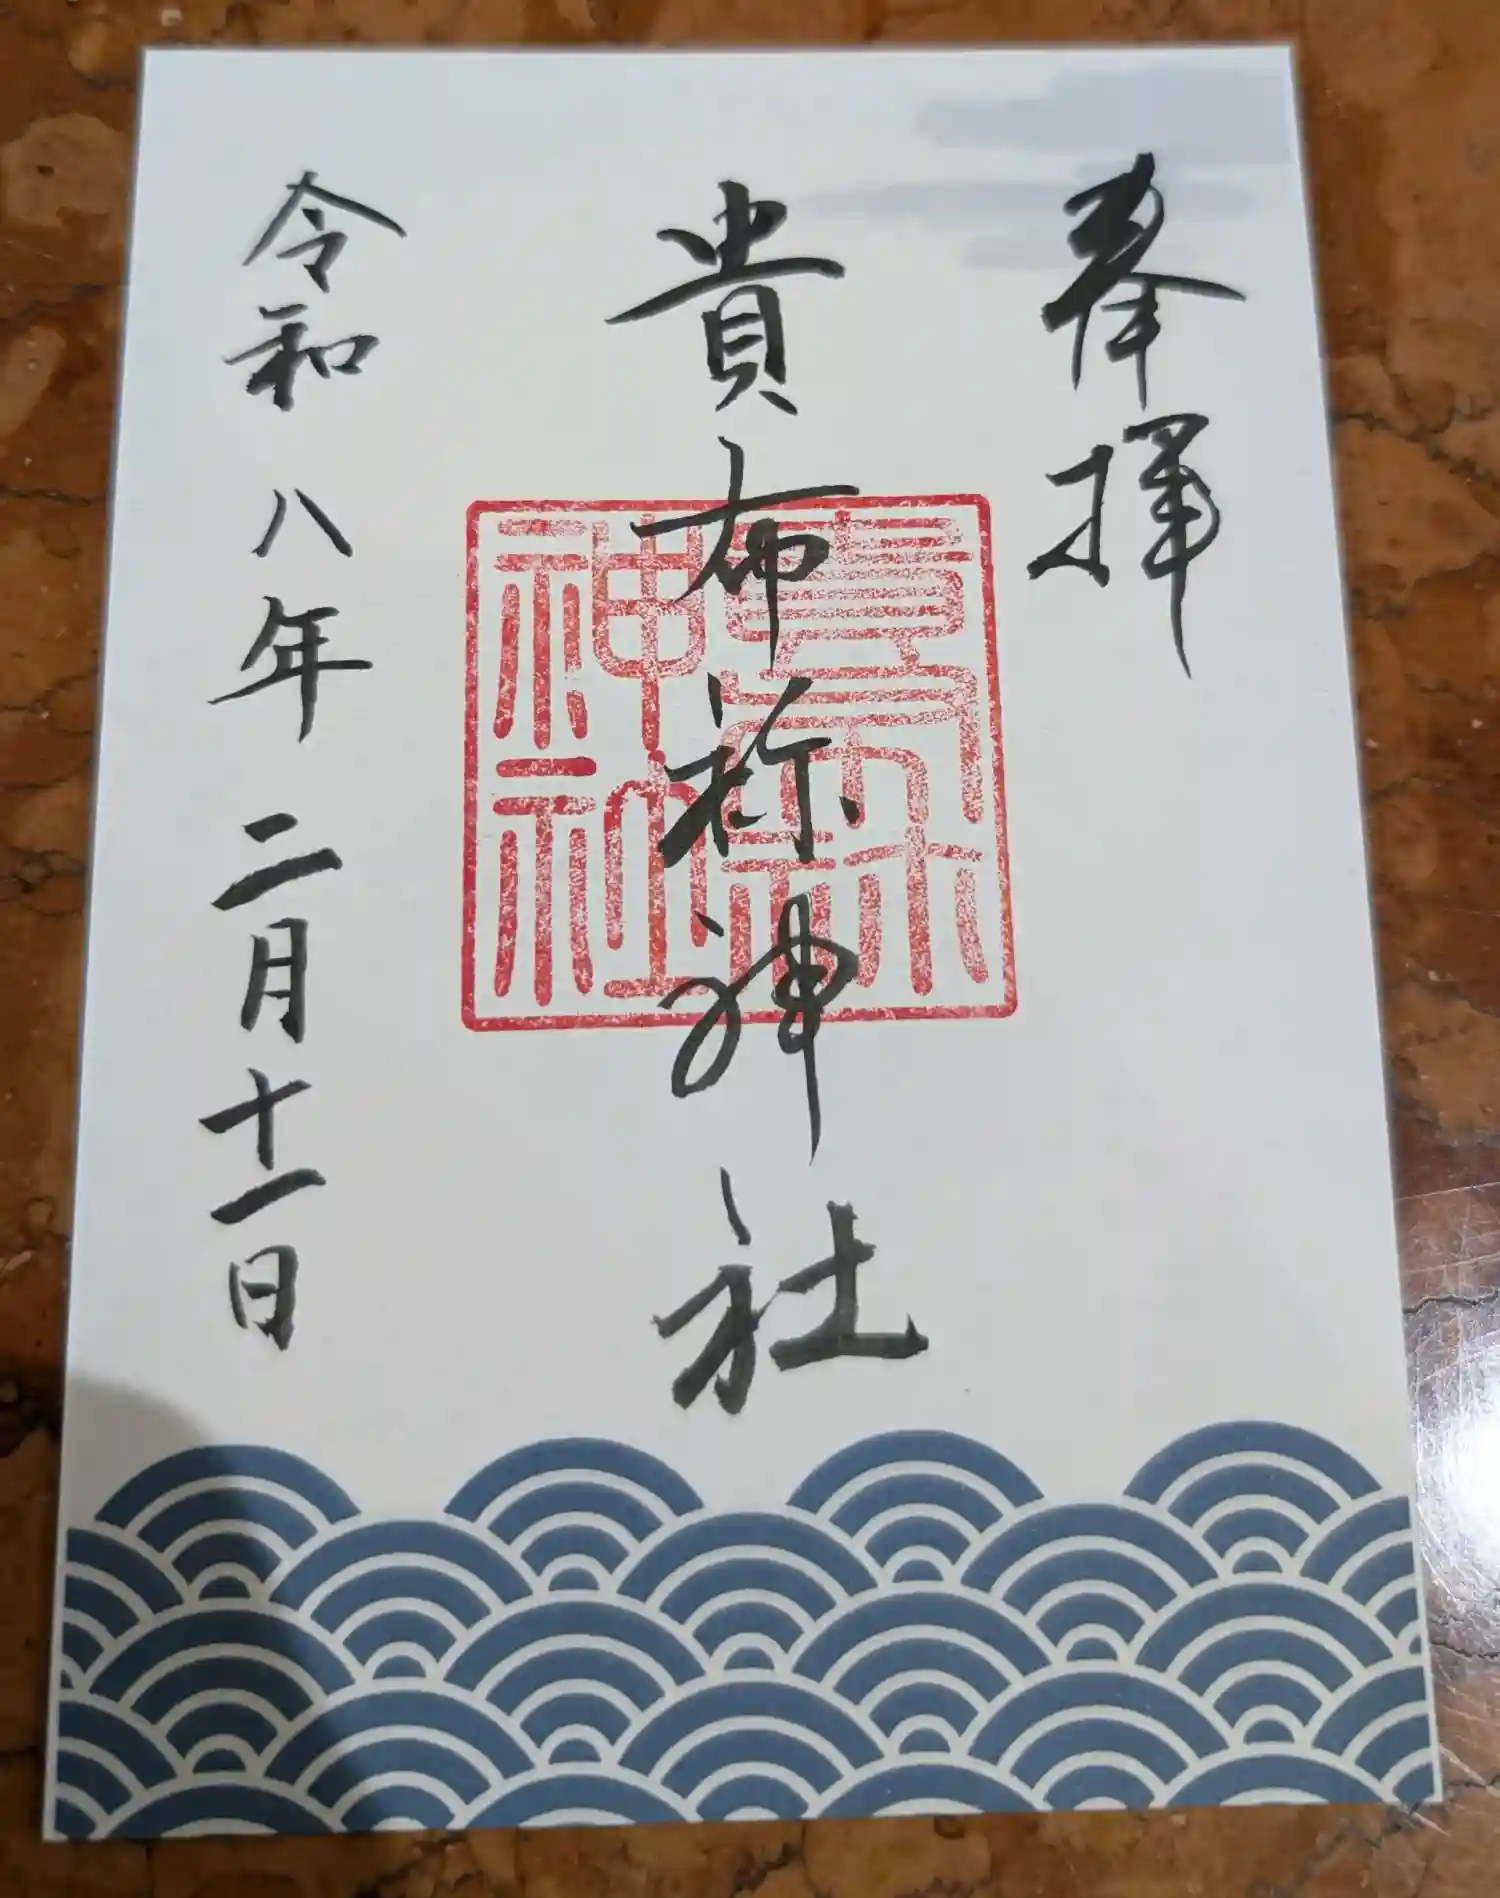 奉拝
貴布祢神社
貴布祢
神社
令和八年二月十一日